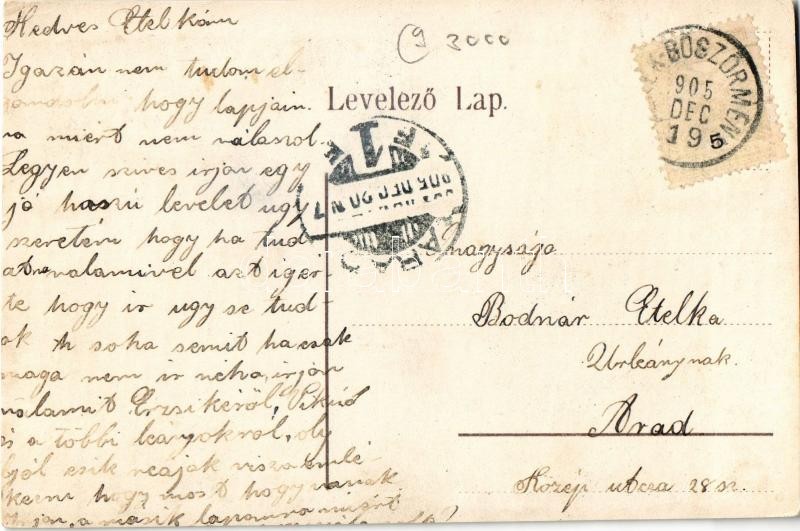 Kedves Etelkám
Igazán nem tudom el-
hogy lapjaim-
ra miért nem válaszol.
Legyen szives irjon egy
jó hoszú levelet ugy
szeretém hogy ha tud-
valamivel azt iger-
te hogy ir ugy se tud-
ok soha semit ha csak
maga nem ir néha, irjon
valamit Erzsikéről,
és a többi leányokról, oly
jól esik reájok visszaemlé-
kezni hogy most hogy vanak
Irjon, a másik lapomra miért
9 3000
Levelező Lap.
BÖSZÖRMÉN
905
DEC
19
5
1
905 DEC 20 N 7
ARAD
Nagysága
Bodnár Etelka
Urleánynak.
Arad
Közép utcza 28 sz.